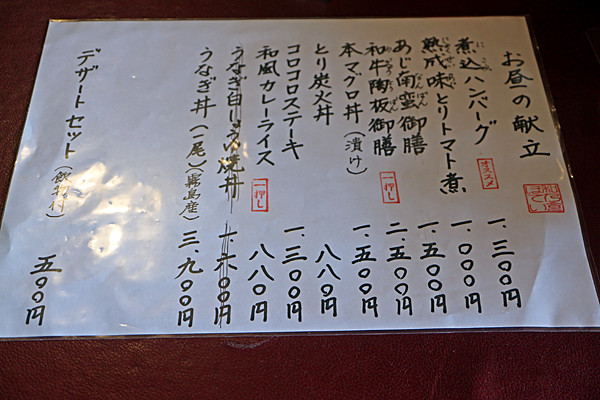 お昼の献立
煮込ハンバーグ オススメ 一.三〇〇円
熟成味とりトマト煮 一.〇〇〇円
あじ南蛮御膳 一.五〇〇円
和牛陶板御膳 一押し 二.五〇〇円
本マグロ丼(漬け) 一.五〇〇円
とり炭火丼 八八〇円
コロコロステーキ 一.三〇〇円
和風カレーライス 一押し 八八〇円
うなぎ白しょうゆ焼丼 一.六〇〇円
うなぎ丼(一尾)(霧島産) 三.九〇〇円
デザートセット(飲物付) 五〇〇円